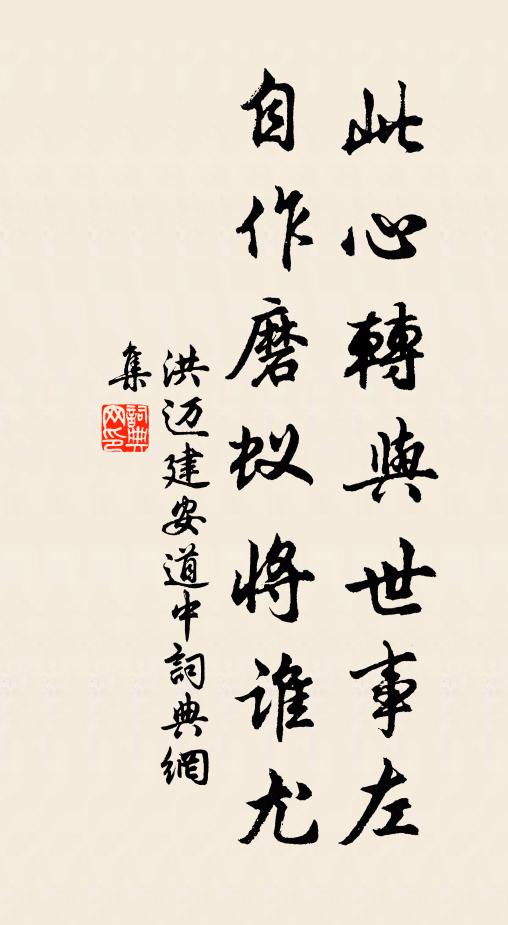 此心轉與世事左
自作磨蚁将谁尤
洪迈建安道中詞典網
集
詞典
网印